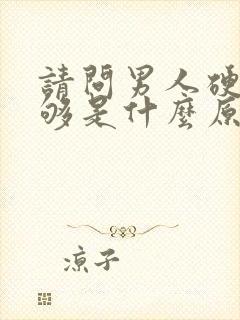 請問男人硬
够是什麼原
涼子